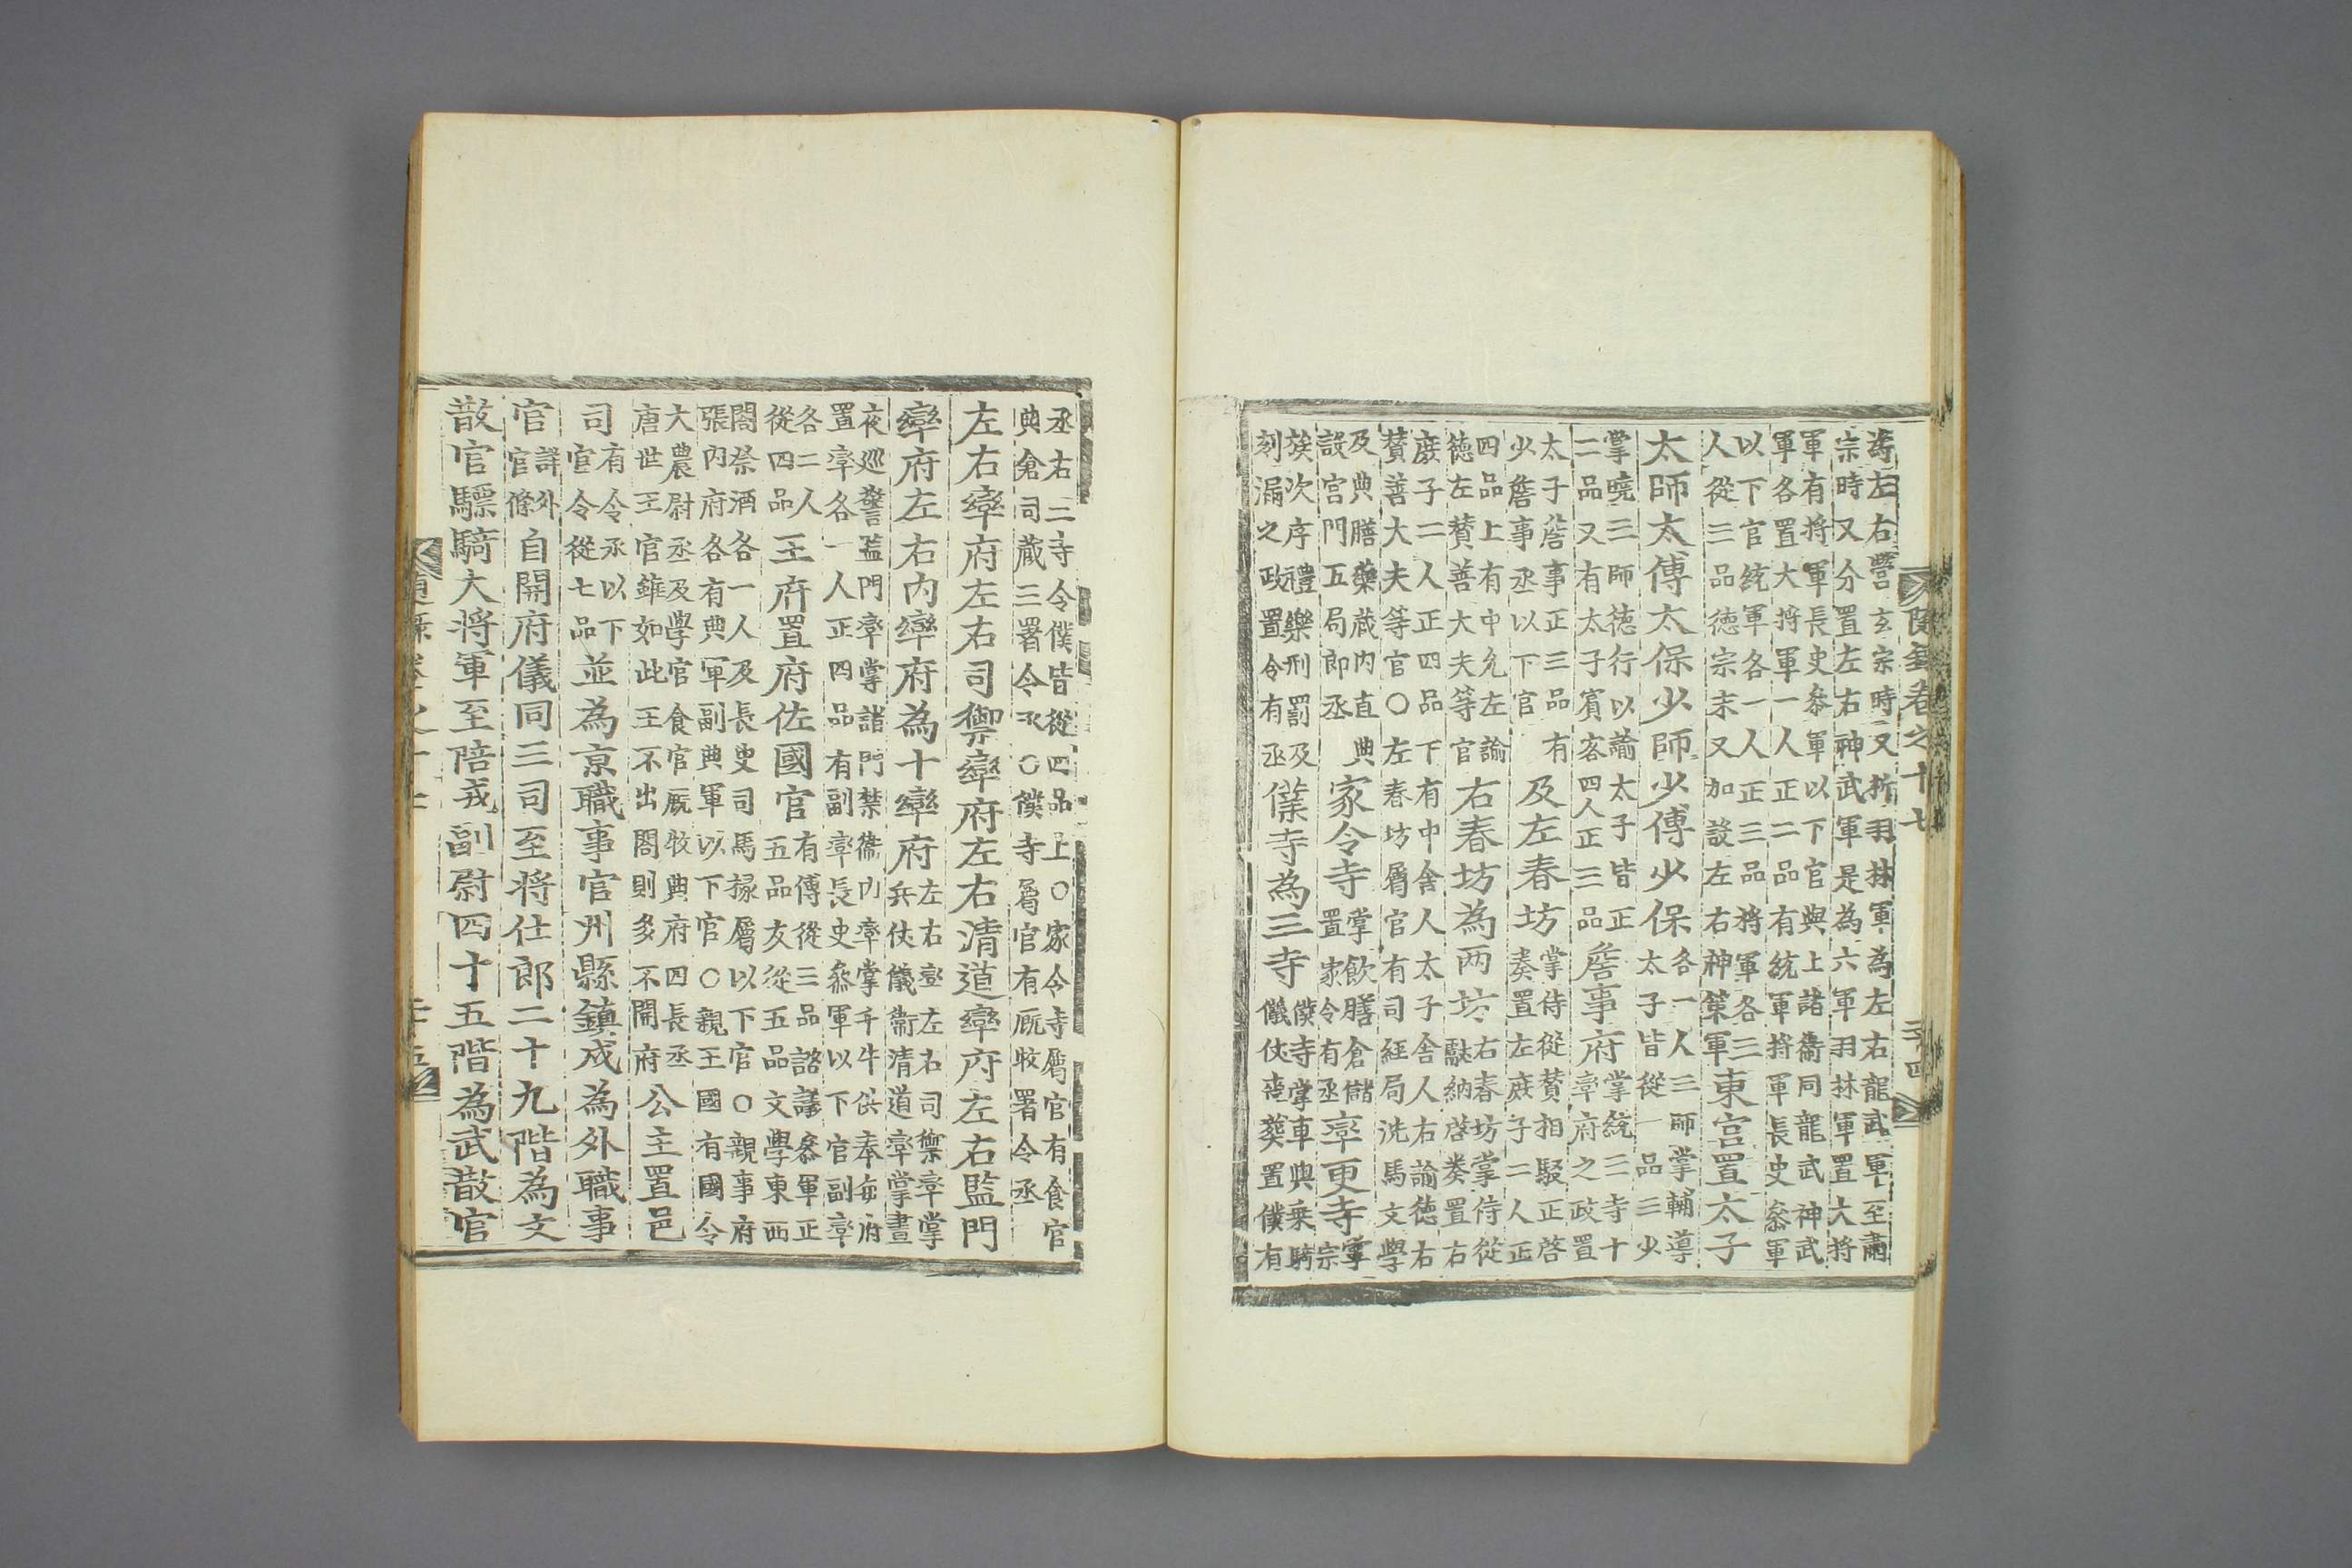 為左右營玄宗時又折羽林軍為左右龍武軍至肅
宗時又分置左右神武軍是為六軍羽林軍置大將
軍有將軍長史叅軍以下官與上諸衞同龍武神武
軍各置大將軍一人正二品有統軍將軍長史叅軍
以下官統軍各一人正三品將軍各三
人從三品德宗末又加設左右神策軍
東宮置太子
太師太傅太保少師少傅少保
各一人三師掌輔導
太子皆從一品三少
掌曉三師德行以諭太子皆正
二品又有太子賓客四人正三品
詹事府
掌統三寺十
率府之政置
太子詹事正三品有
少詹事丞以下官
及左春坊
掌侍從贊相駁正啓
奏置左庶子二人正
四品上有中允左諭
德左贊善大夫等官
右春坊為兩坊
右春坊掌侍從
獻納啓奏置右
庶子二人正四品下有中舍人太子舍人右諭德右
贊善大夫等官○左春坊屬官有司經局洗馬文學
及典膳藥藏內直典
設宮門五局郎丞
家令寺
掌飮膳倉儲
置家令有丞
率更寺
掌
宗
族次序禮樂刑罰及
刻漏之政置令有丞
僕寺為三寺
僕寺掌車輿乗騎
儀仗喪葬置僕有
丞右三寺令僕皆從四品上○家令寺屬官有食官
典倉司藏三署令丞○僕寺屬官有厩牧署令丞
左右率府左右司禦率府左右清道率府左右監門
率府左右內率府為十率府
左右率左右司禦率掌
兵仗儀衞清道率掌晝
夜巡警監門率掌諸門禁衞內率掌千牛供奉每府
置率各一人正四品有副率長史叅軍以下官副率
各二人
從四品
王府置府佐國官
有傅從三品諮議叅軍正
五品友從五品文學東西
閤祭酒各一人及長史司馬掾屬以下官○親事府
張內府各有典軍副典軍以下官○親王國有國令
大農尉丞及學官食官厩牧典府四長丞
唐世王官雖如此王不出閤則多不開府
公主置邑
司
有令丞以下
官令從七品
並為京職事官州縣鎮戍為外職事
官
詳外
官條
自開府儀同三司至將仕郎二十九階為文
散官驃騎大將軍至陪戎副尉四十五階為武散官